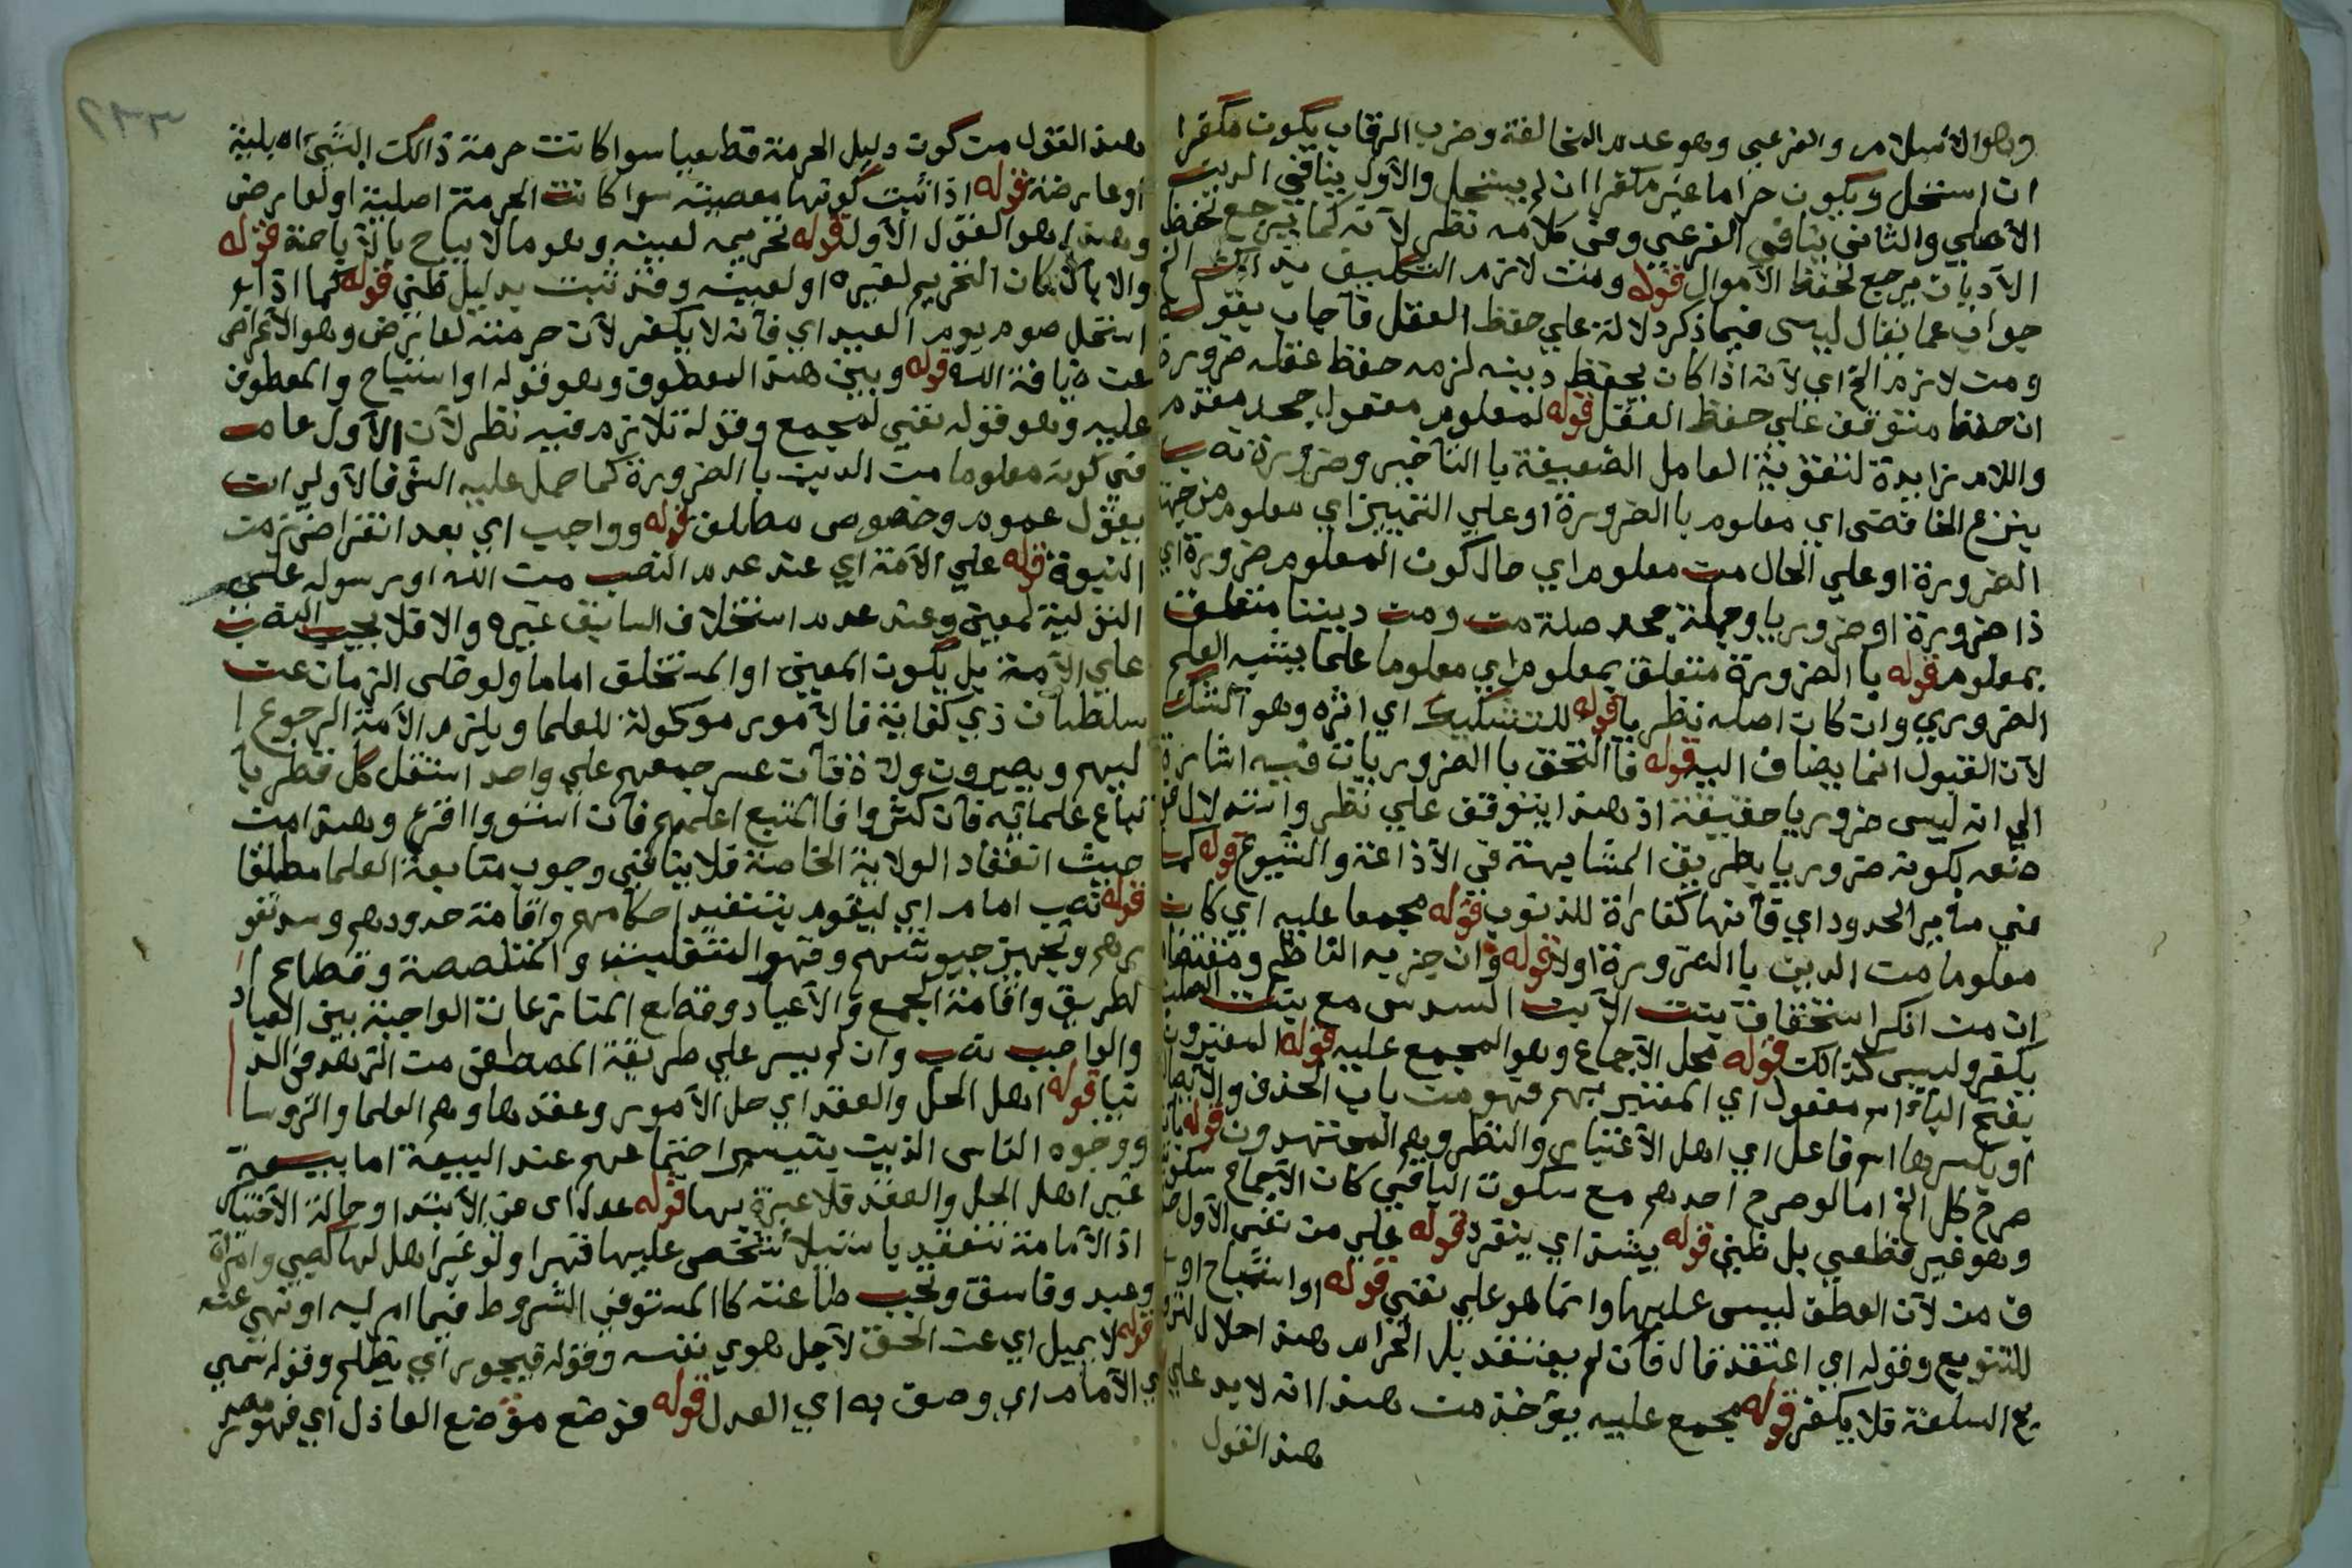 وهو الاسلام والفرعي وهو عدم المخالفة وضرب الرقاب يكون مكفرا
ان استحل ويكون حراما غير مكفرا ان لم يستحل والأول ينافي الدين
الأصلي والثاني ينافي الفرعي وفي كلامه نظر لأنه كما يرجع لحفظ
الأديان يرجع لحفظ الأموال قوله ومن لازم التكليف بذالك الخ
جواب عما يقال ليس فيما ذكر دلالة علي حفظ العقل فأجاب بقوله
ومن لازم الخ اي لأنه اذا كان يحفظ دينه لزمه حفظ عقله ضرورة
ان حفظها متوقف علي حفظ العقل قوله لمعلوم مفعول جحد مقدم
واللام زايدة لتقوية العامل الضعيفة با التأخير وضرورة نصب
بنزع الخافض اي معلوم با الضرورة او علي التمييز اي معلوم من جهة
الضرورة او علي الحال من معلوم اي حال كون المعلوم ضرورة اي
ذا ضرورة او ضروريا وجملة جحد صلة من ومن ديننا متعلق
بمعلوم قوله با الضرورة متعلق بمعلوم اي معلوما علما يشبه العلم
الضروري وان كان اصله نظريا قوله للتشكيك اي اثره وهو الشك
لأن القبول انما يضاف اليه قوله فا التحق با الضروريات فيه اشارة
الي انه ليس ضروريا حقيقة اذ هذا يتوقف علي نظر واستدلال
منعه لكونه ضروريا بطريق المشابهة في الأذاعة والشيوع قوله كما
في ساير الحدود اي فأنها كفارة للذنوب قوله مجمعا عليه اي كان
معلوما من الدين با الضرورة اولا قوله وان جزم به الناظم ومقتضا
ان من انكر استحقاق بنت الأبن السدس مع بنت الصلب
يكفر وليس كذالك قوله محل الأجماع وهو المجمع عليه قوله المعتبرون
بفتح الباء اسم مفعول اي المعتبر بهم فهو من باب الحذف والأيصال
او بكسرها اسم فاعل اي اهل الأعتبار والنظر وهم المجتهدون قوله بان
صرح كل الخ اما لو صرح احدهم مع سكوت الباقي كان الأجماع سكوتي
وهو غير قطعي بل ظني قوله يشذ اي ينفرد قوله علي من نفي الأول
ف من لأن العطف ليس عليها وانما هو علي نفي قوله او استباح او
للتنويع وقوله اي اعتقد قال فأن لم يعتقد بل الحرام هذا احلال لترو
يج السلعة فلا يكفر قوله مجمع عليه يؤخذ من هذا انه لا بد علي
هذ القول
هذ القول من كون دليل الحرمة قطعيا سوا كانت حرمة ذالك الشيء اصلية
او عارضة قوله اذا ثبت كونها معصية سوا كانت الحرمة اصلية او لعارض
وهذا هو القول الأول قوله تحريمه لعينه وهو مالا يباح با الأباحة قوله
والا بأن كان التحريم لغيره او لعينه وقد ثبت بدليل ظني قوله كما اذا
استحل صوم يوم العيد اي فأنه لا يكفر لأن حرمته لعارض وهو الأعراض
عن ضيافة الله قوله وبين هذ المعطوف وهو قوله او استباح والمعطوف
عليه وهو قوله نفي لمجمع وقوله تلازم فيه نظر لأن الأول عام
في كونه معلوما من الدين با الضرورة كما حمل عليه الش فالأولي ان
يقول عموم وخصوص مطلق قوله وواجب اي بعد انقراض زمن
النبوة قوله علي الأمة اي عند عدم النصب من الله او رسوله علي
التولية لمعين وعند عدم استخلاف السابق غيره والا فلا يجب النصب
علي الأمة بل يكون المعين او المستخلف اماما ولو خلي الزمان عن
سلطان ذي كفاية فالأمور موكولة للعلما ويلزم الأمة الرجوع ا
ليهم ويصيرون ولاة فأن عسر جمعهم علي واحد استقل كل قطر با
تباع علمائه فأن كثروا فا المتبع اعلمهم فأن استووا اقرع وهذا من
حيث انعقاد الولاية الخاصة فلا ينافي وجوب متابعة العلما مطلقا
قوله نصب امام اي ليقوم بتنفيذ احكامهم واقامة حدودهم وسد ثغو
رهم وتجهيز جيوشهم وقهر المتغلبين والمتلصصة وقطاع ا
لطريق واقامة الجمع والأعياد وقطع المنازعات الواجبة بين العباد
والواجب نصب وان لم يسر علي طريقة المصطفي من الزهد في الد
نيا قوله اهل الحل والعقد اي حل الأمور وعقدها وهم العلما والرؤسا
ووجوه الناس الذين يتيسر اجتماعهم عند البيعة اما بيعة
غير اهل الحل والعقد فلا عبرة بها قوله عدل اي في الأبتدا وحالة الأختيار
اذ الأمامة تنعقد باستيلا شخص عليها قهرا ولو غير اهل لها كصبي وامرأة
وعبد وفاسق وتجب طاعته كا المستوفي الشروط فيما امر به او نهي عنه
قوله لا يميل اي عن الحق لأجل هوي نفسه وقوله فيجور اي يظلم وقوله سمي
ي الأمام اي وصف به اي العدل قوله فوضع موضع العاذل اي فهو مصدر